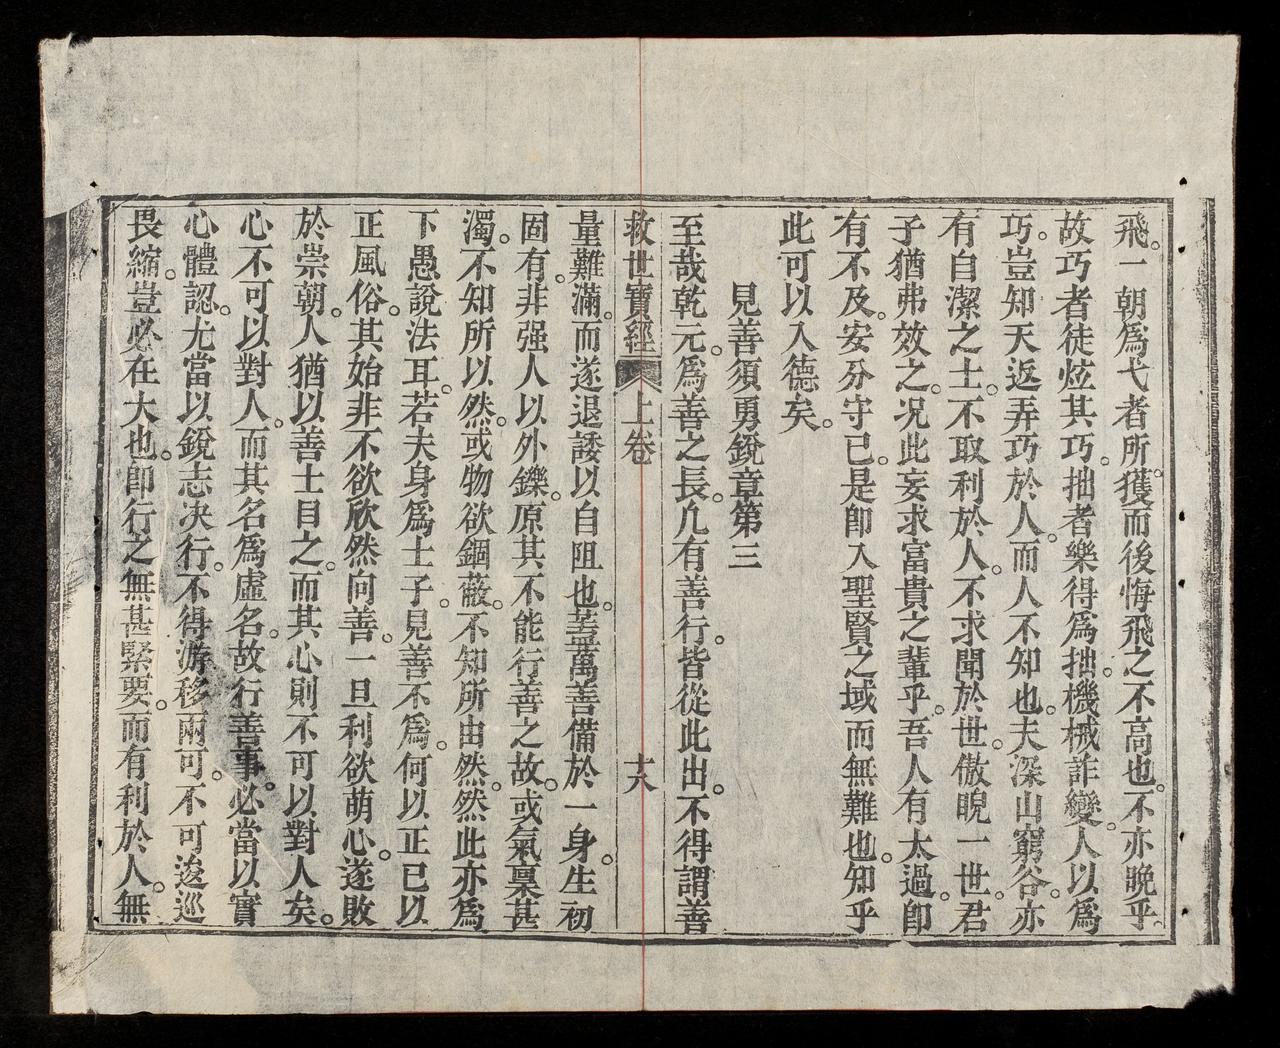 飛。一朝爲弋者所。獲而後悔飛之不高也。不亦晚乎。
故巧者徒炫其巧。拙者樂得爲拙。機械詐變。人以爲
巧。豈知天返弄巧於人。而人不知也。夫深山窮谷。亦
有自潔之士。不取利於人。不求聞於世。傲睨一世。君
子猶弗效之。况此妄求富貴之輩乎。吾人有太過。卽
有不及。安分守己。是卽入聖賢之域而無難也。知乎
此可以入德矣。
見善須勇銳章第三
至哉乾元。爲善之長。凢有善行。皆從此出。不得謂善
救世寶經 上卷 十八
量難滿。而遂退諉以自阻也。葢萬善備於一身。生初
固有。非强人以外鑠。原其不能行善之故。或氣稟甚
濁。不知所以然。或物欲錮蔽。不知所由然。然此亦爲
下愚說法耳。若夫身爲士子。見善不爲。何以正已以
正風俗。其始非不欲欣然向善。一旦利欲萌心。遂敗
於崇朝。人猶以善士目之。而其心則不可以對人矣。
心不可以對人。而其名爲虛名。故行善事。必當以實
心體認。尤當以銳志决行。不得游移兩可。不可逡巡
畏縮。豈必在大也。卽行之無甚緊要。而有利於人。無